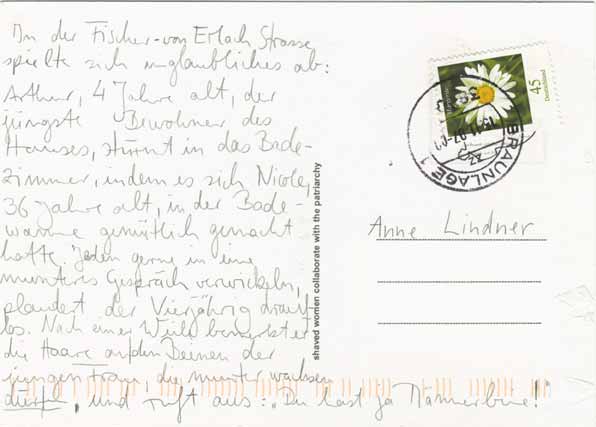 In der Fischer-von Erlach Strasse
spielte sich unglaubliches ab:
Arthur, 4 Jahre alt, der
jüngste Bewohner des
Hauses, stürmt in das Bade-
zimmer, indem es sich Nicole,
36 Jahre alt, in der Bade-
wanne gemütlich gemacht
hatte. Jeden gerne in eine
munteres Gespräch verwickeln,
plaudert der Vierjährig drauf-
los. Nach einer Weile bemerkt er
die Haare auf den Beinen der
jungen Frau, die munter wachsen
dürfen, und ruft aus: "Du hast ja Männerbeine!"
shaved women collaborate with the patriarchy
45
Deutschland
BRAUNLAGE 1
Anne Lindner